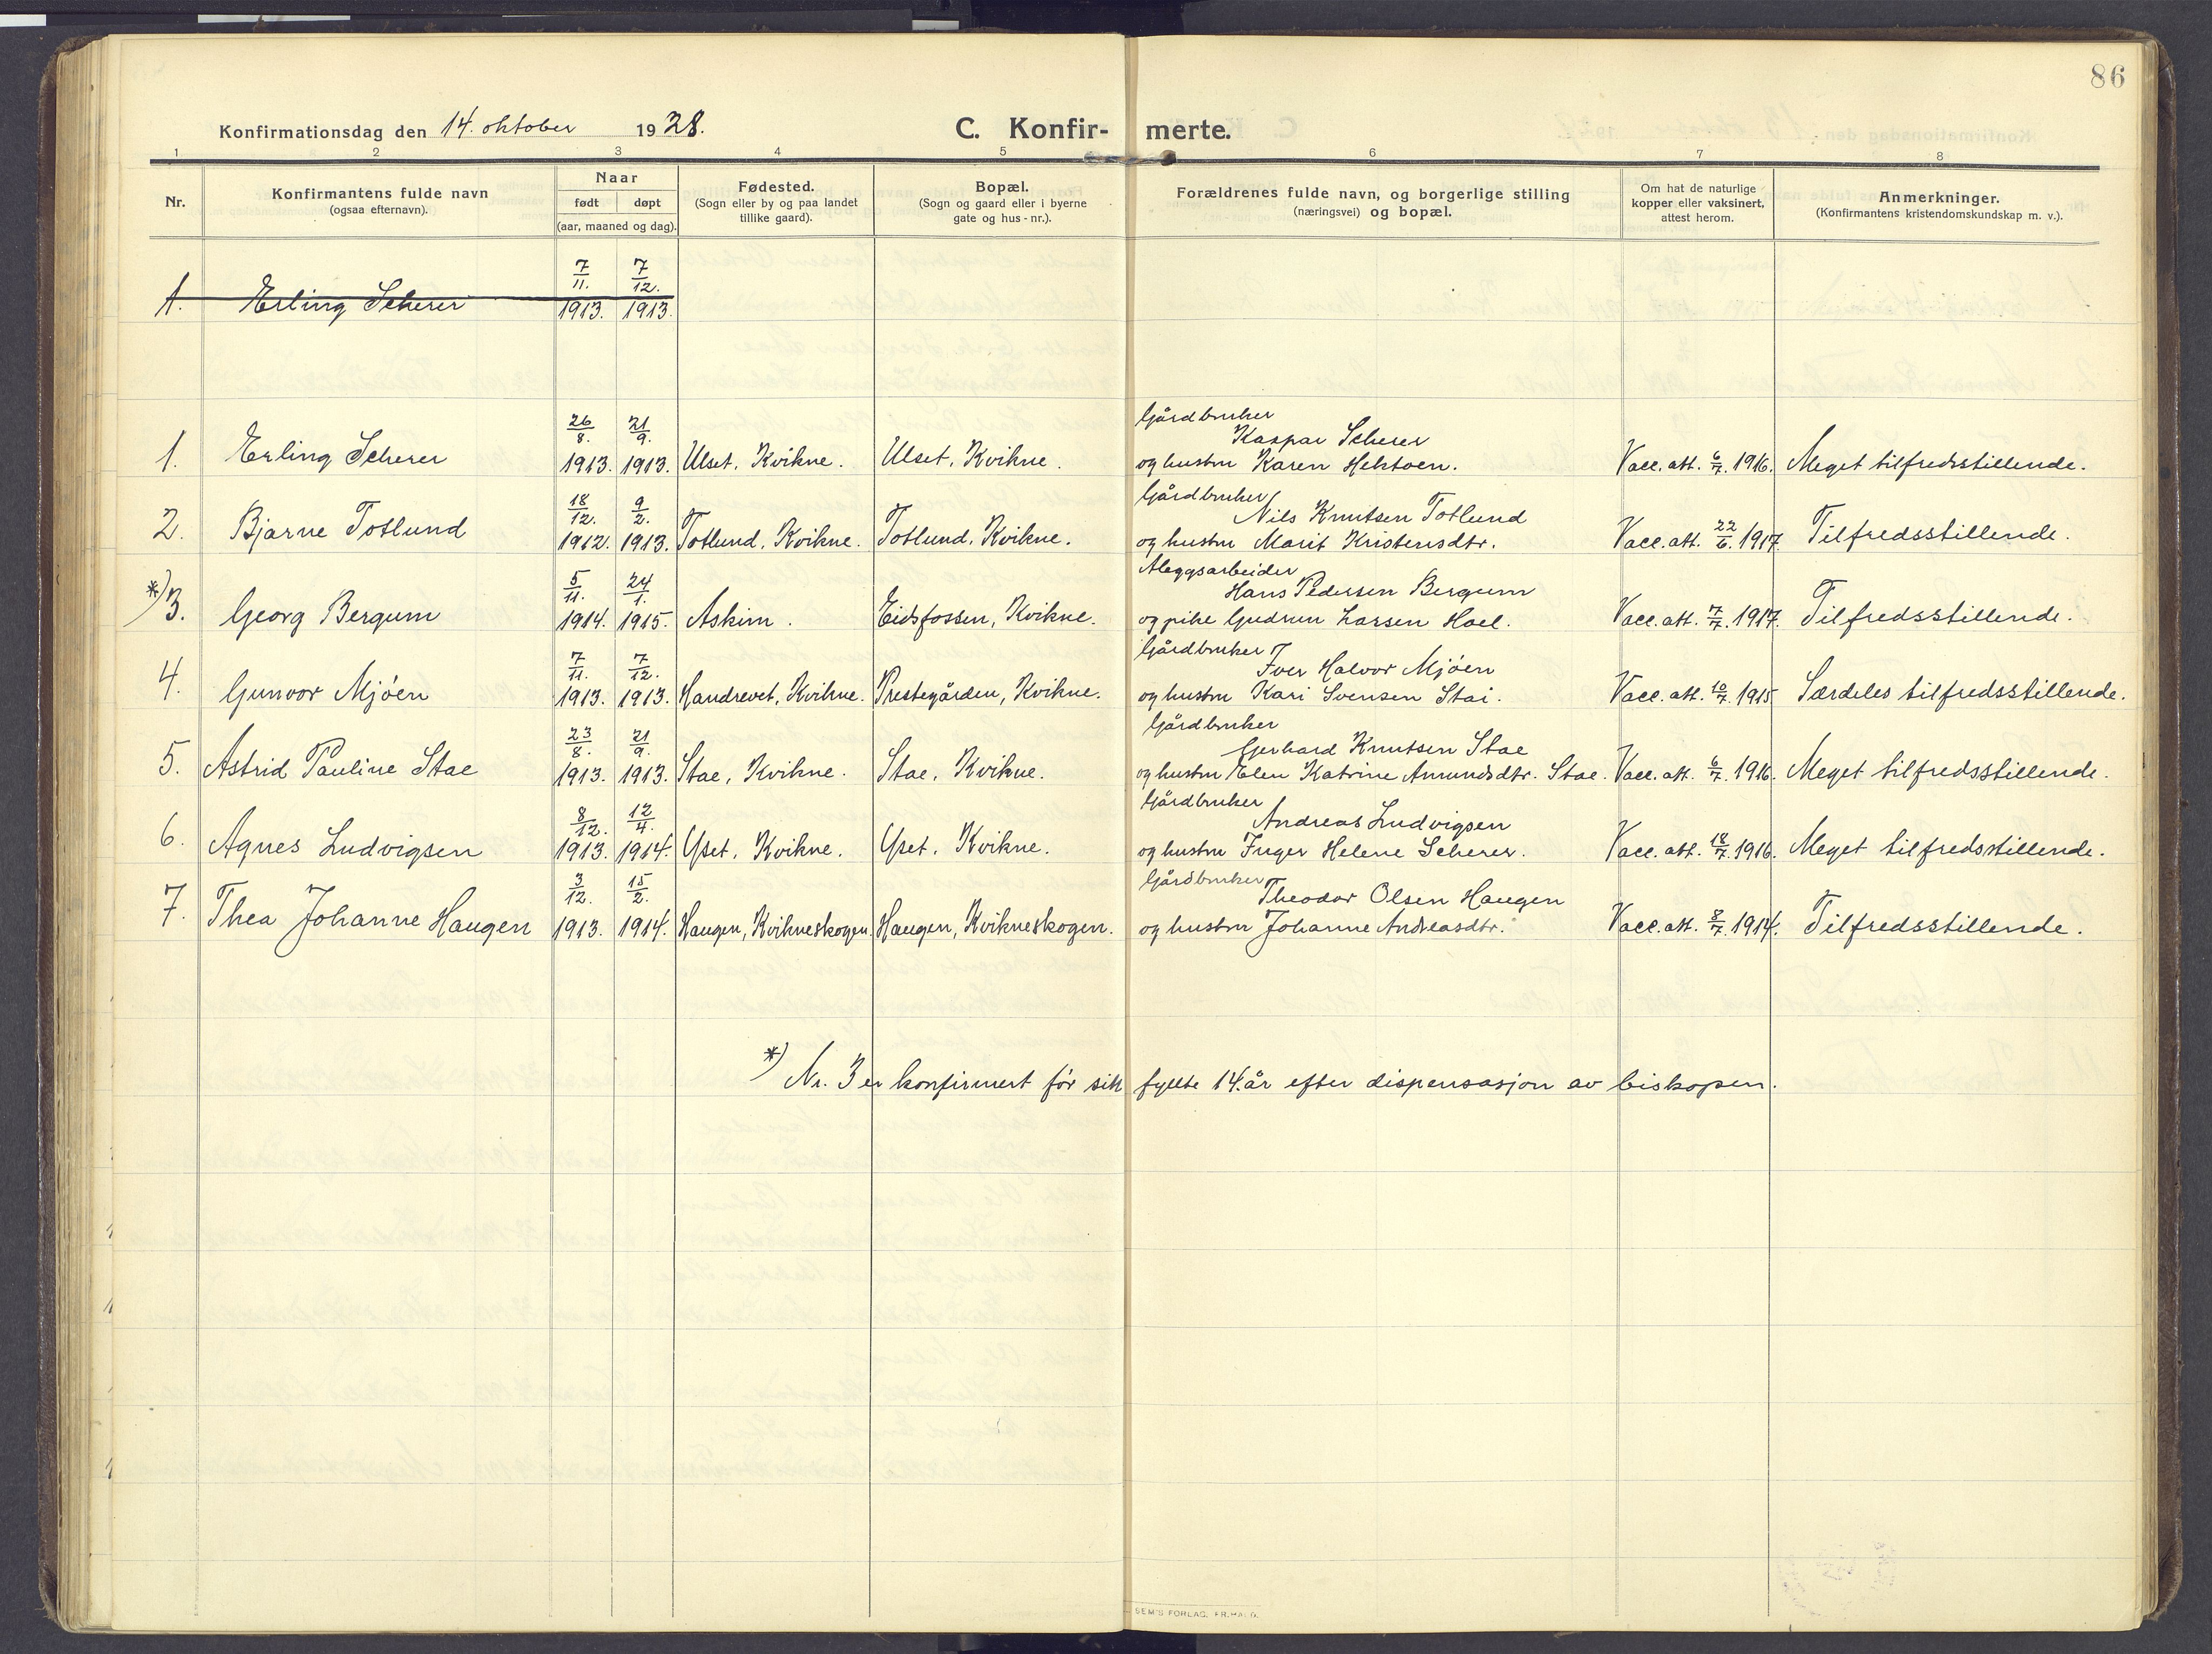 86
Konfirmationsdag den 14. oktober 1928.
C. Konfir- merte.
1 2 3 4 5 6 7 8
Nr.
Konfirmantens fulde navn
(ogsaa efternavn).
Naar
født døpt
(aar, maaned og dag).
Fødested.
(Sogn eller by og paa landet
tillike gaard).
Bopæl.
(Sogn og gaard eller i byerne
gate og hus-nr.).
Forældrenes fulde navn, og borgerlige stilling
(næringsvei) og bopæl.
Om hat de naturlige
kopper eller vaksinert,
attest herom.
Anmerkninger.
(Konfirmantens kristendomskundskap m. v.).
7/11. 7/12.
1. Erling Scherer 1913. 1913.
26/8. 21/9. Gårdbruker
Kaspar Scherer
1. Erling Scherer 1913. 1913. Ulset, Kvikne. Ulset, Kvikne. og hustru Karen Hektoen. Vacc. att. 6/7. 1916. Meget tilfredsstillende.
18/12. 9/2. Gårdbruker
Nils Knutsen Totlund
2. Bjarne Totlund 1912. 1913. Totlund, Kvikne. Totlund, Kvikne. og hustru Marit Kristensdtr. Vacc. att. 22/6. 1917. Tilfredsstillende.
5/11. 24/1. Aleggsarbeider
Hans Pedersen Bergum
*) 3. Georg Bergum 1914. 1915. Askim. Eidsfossen, Kvikne. og pike Gudrun Larsen Hoel. Vacc. att. 7/7. 1917. Tilfredsstillende.
7/11. 7/12. Gårdbruker
Iver Halvor Mjöen
4. Gunvor Mjöen 1913. 1913. Handrevet, Kvikne. Prestegården, Kvikne. og hustru Kari Svensen Stai. Vacc. att. 10/7. 1915. Særdeles tilfredsstillende.
23/8. 21/9. Gårdbruker
Gerhard Knutsen Stae
5. Astrid Pauline Stae 1913. 1913. Stae, Kvikne. Stae, Kvikne. og hustru Elen Katrine Amundsdtr. Stae. Vacc. att. 6/7. 1916. Meget tilfredsstillende.
8/12. 12/4. Gårdbruker
Andreas Ludvigsen
6. Agnes Ludvigsen 1913. 1914. Yset, Kvikne. Yset, Kvikne. og hustru Inger Helene Scherer. Vacc. att. 18/7. 1916. Meget tilfredsstillende.
3/12. 15/2. Gårdbruker
Theodor Olsen Haugen
7. Thea Johanne Haugen 1913. 1914. Haugen, Kvikneskogen. Haugen, Kvikneskogen. og hustru Johanne Andreasdtr. Vacc. att. 8/7. 1914. Tilfredsstillende.
*) Nr. 3 er konfirmert før sitt fyllte 14. år efter dispensasjon av biskopen.
SEM'S FORLAG, FR.HALD.